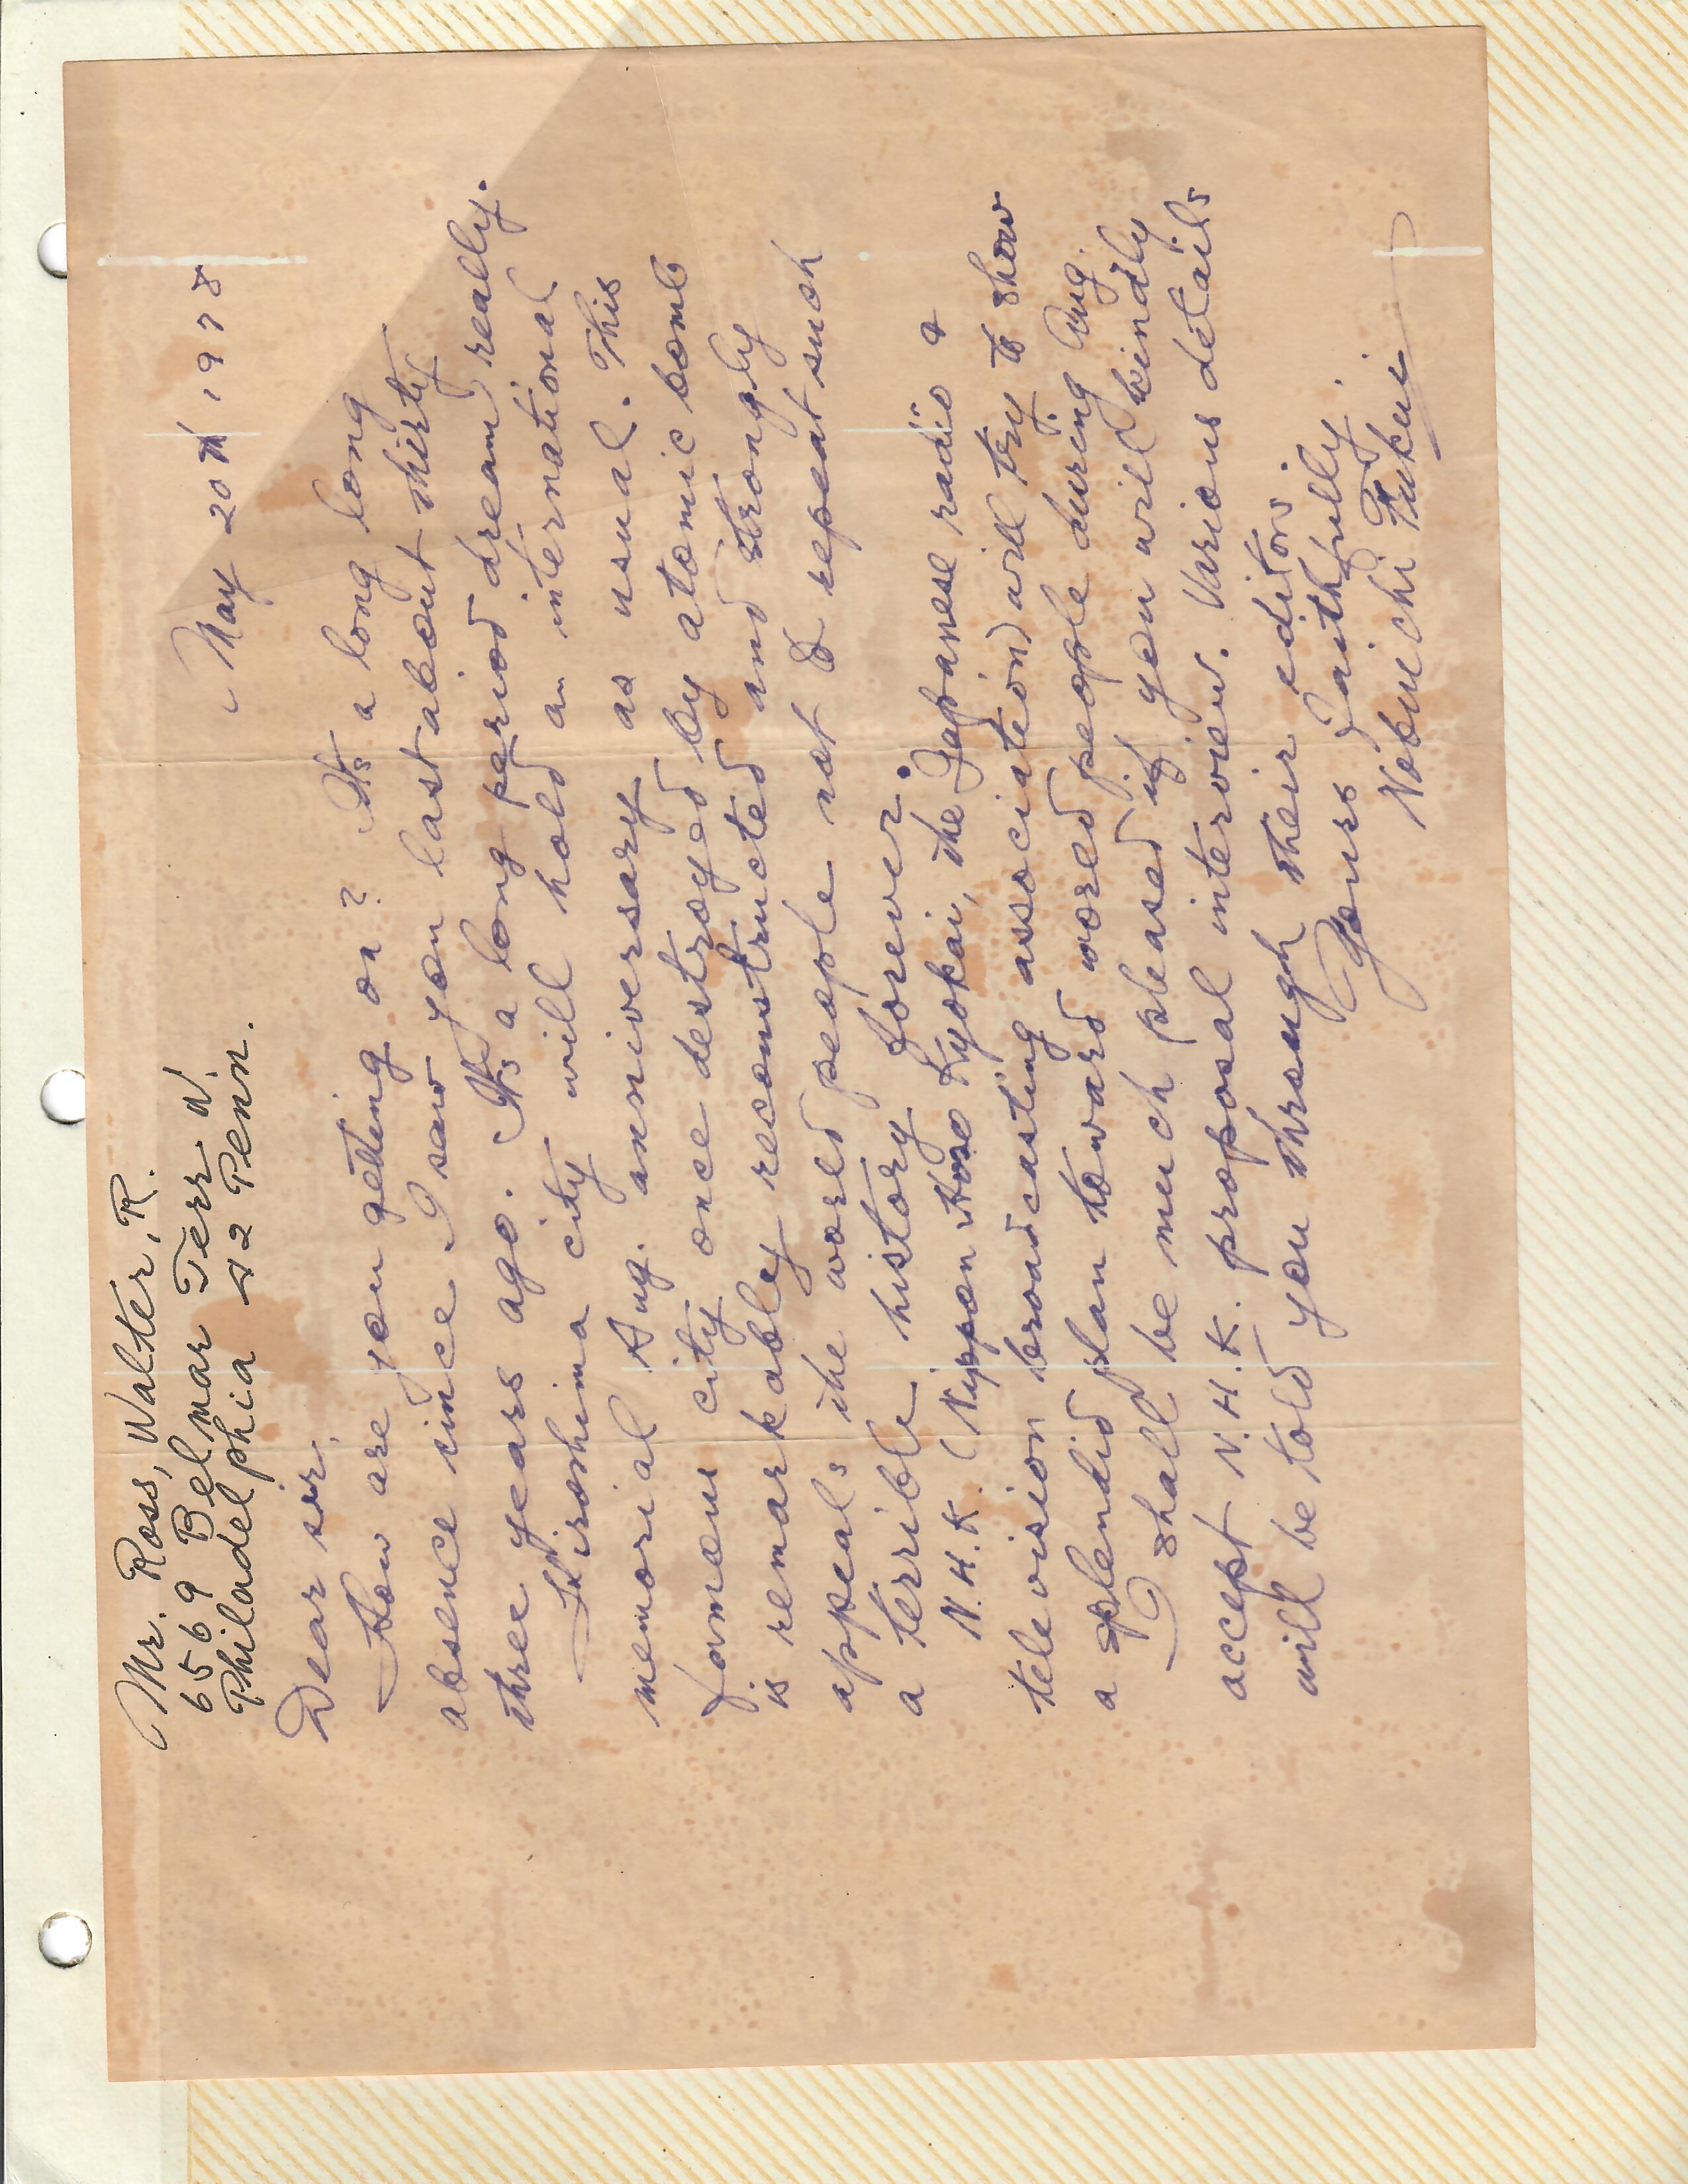 Mr. Ross, Walter, R.
6569 Belmar Terr N.
Philadelphia 42 Penn.
May 20th 1978
Dear sir,
How are you getting on? It's a long long
absence since I saw you last about thirty
three years ago. It's a long period dream really.
Hiroshima city will hold an international
memorial Aug. anniversary as usual. This
famous city once destroyed by atomic bomb
is remarkably reconstructed and strongly
appeals the world people not to repeat such
a terrible history forever.
N.H.K. (Nippon Hoso Kyokai, the Japanese radio &
television broadcasting association) will try to show
a splendid plan toward world people during Aug.
I shall be much pleased if you will kindly
accept N.H.K. proposal interview. Various details
will be told you through their editor.
Yours faithfully.
Nobuichi Fukui